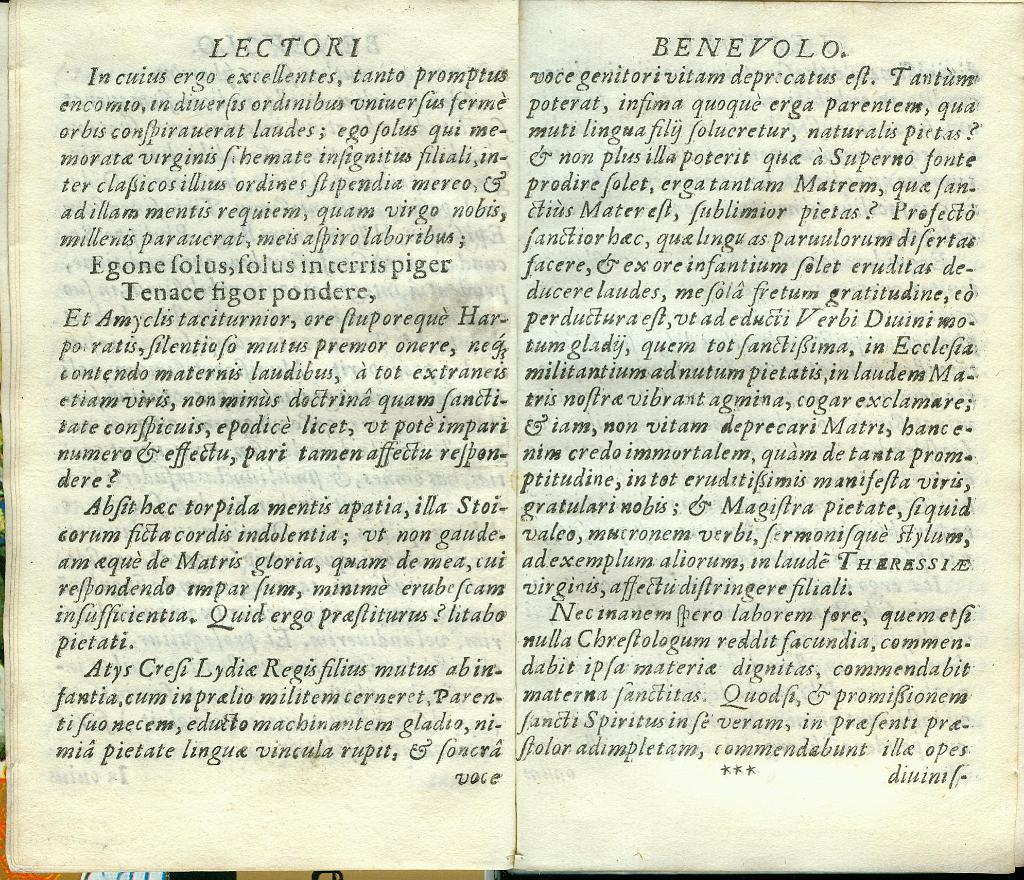 LECTORI
In cuius ergo excellentes, tanto promptus
encomio, in diuersis ordinibus vniuersus fermè
orbis conspirauerat laudes; ego solus qui me-
moratæ virginis schemate insignitus filiali, in-
ter classicos illius ordines stipendia mereo, &
ad illam mentis requiem, quam virgo nobis,
millenis parauerat, meis aspiro laboribus;
Egone solus, solus in terris piger
Tenace figor pondere,
Et Amyclis taciturnior, ore stuporequè Har-
pocratis, silentioso mutus premor onere, neq;
contendo maternis laudibus, à tot extraneis
etiam viris, non minùs doctrinâ quam sancti-
tate conspicuis, epodicè licet, vt potè impari
numero & effectu, pari tamen affectu respon-
dere?
Absit hæc torpida mentis apatia, illa Stoi-
corum ficta cordis indolentia; vt non gaude-
am æquè de Matris gloria, quam de mea, cui
respondendo impar sum, minimè erubescam
insufficientia. Quid ergo præstiturus? litabo
pietati.
Atys Cresi Lydiæ Regis filius mutus ab in-
fantia, cum in prælio militem cerneret, Paren-
ti suo necem, educto machinantem gladio, ni-
miâ pietate linguæ vincula rupit, & soncrâ
voce
BENEVOLO.
voce genitori vitam deprecatus est. Tantùm
poterat, infima quoquè erga parentem, qua
muti lingua filij solueretur, naturalis pietas?
& non plus illa poterit quæ à Superno fonte
prodire solet, erga tantam Matrem, quæ san-
ctiùs Mater est, sublimior pietas? Profectò
sanctior hæc, quæ linguas paruulorum disertas
facere, & ex ore infantium solet eruditas de-
ducere laudes, me solâ fretum gratitudine, eò
perductura est, vt ad educti Verbi Diuini mo-
tum gladij, quem tot sanctissima, in Ecclesia
militantium ad nutum pietatis, in laudem Ma-
tris nostræ vibrant agmina, cogar exclamare;
& iam, non vitam deprecari Matri, hanc e-
nim credo immortalem, quàm de tanta prom-
ptitudine, in tot eruditissimis manifesta viris,
gratulari nobis; & Magistra pietate, si quid
valeo, mucronem verbi, sermonisquè stylum,
ad exemplum aliorum, in laudē THERESSIÆ
virginis, affectu distringere filiali.
Nec inanem spero laborem fore; quem etsi
nulla Chrestologum reddit facundia, commen-
dabit ipsa materiæ dignitas, commendabit
materna sanctitas. Quodsi, & promissionem
sancti Spiritus in se veram, in præsenti præ-
stolor adimpletam, commendabunt illæ opes
***
diuinis-